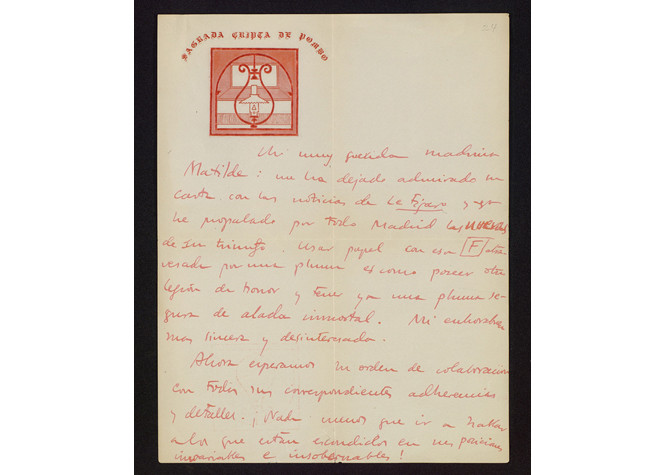 24
SAGRADA CRIPTA DE POMBO
Mi muy querida madrina
Matilde: me ha dejado admirado su
carta con las noticias de Le Figaro y ya
he propalado por todo Madrid las nuevas
de su triunfo. Usar papel con esa F atra-
vesada por una pluma es como poseer otra
legión de honor y tener ya una pluma se-
gura de alada inmortal. Mi enhorabuena
mas sincera y desinteresada.
Ahora esperamos su orden de colaboracion
con todos sus correspondientes adherencias
y detalles. ¡Nada menos que ir a hablar
a los que están escondidos en sus posiciones
invariables e insobornables!